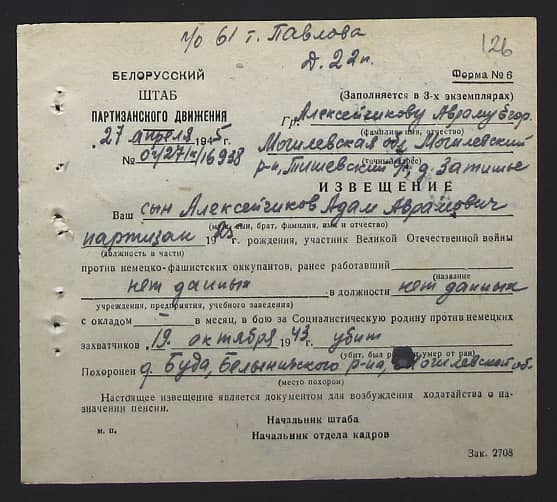 п/о 61 г. Павлова
Д. 22п.
126
БЕЛОРУССКИЙ
ШТАБ
ПАРТИЗАНСКОГО ДВИЖЕНИЯ
„27 апреля 1945г.
№ 04/271к/16938
Форма № 6
(Заполняется в 3-х экземплярах)
Гр. Алексейчикову Авраму Егор.
(фамилия, имя, отчество)
Могилевская обл Могилевский
(точный адрес)
р-н, Тишевский с/с, д. Затишье
ИЗВЕЩЕНИЕ
Ваш сын Алексейчиков Адам Аврамович
(муж, сын, брат, фамилия, имя и отчество)
партизан 19 г. рождения, участник Великой Отечественной войны
(должность в части)
против немецко-фашистских оккупантов, ранее работавший
(название
нет данных в должности нет данных
учреждения, предприятия, учебного заведения)
с окладом — в месяц, в бою за Социалистическую родину против немецких
захватчиков 19. октября 1943г. убит
(убит, был ранен, умер от ран)
Похоронен д. Буда, Белыничского р-на, Могилевской об.
(место похорон)
Настоящее извещение является документом для возбуждения ходатайства о на-
значении пенсии.
Начальник штаба
м. п.
Начальник отдела кадров
Зак. 2708